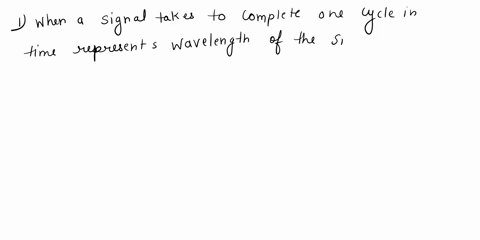 1) When a signal takes to complete one cycle in
time represents wavelength of the si